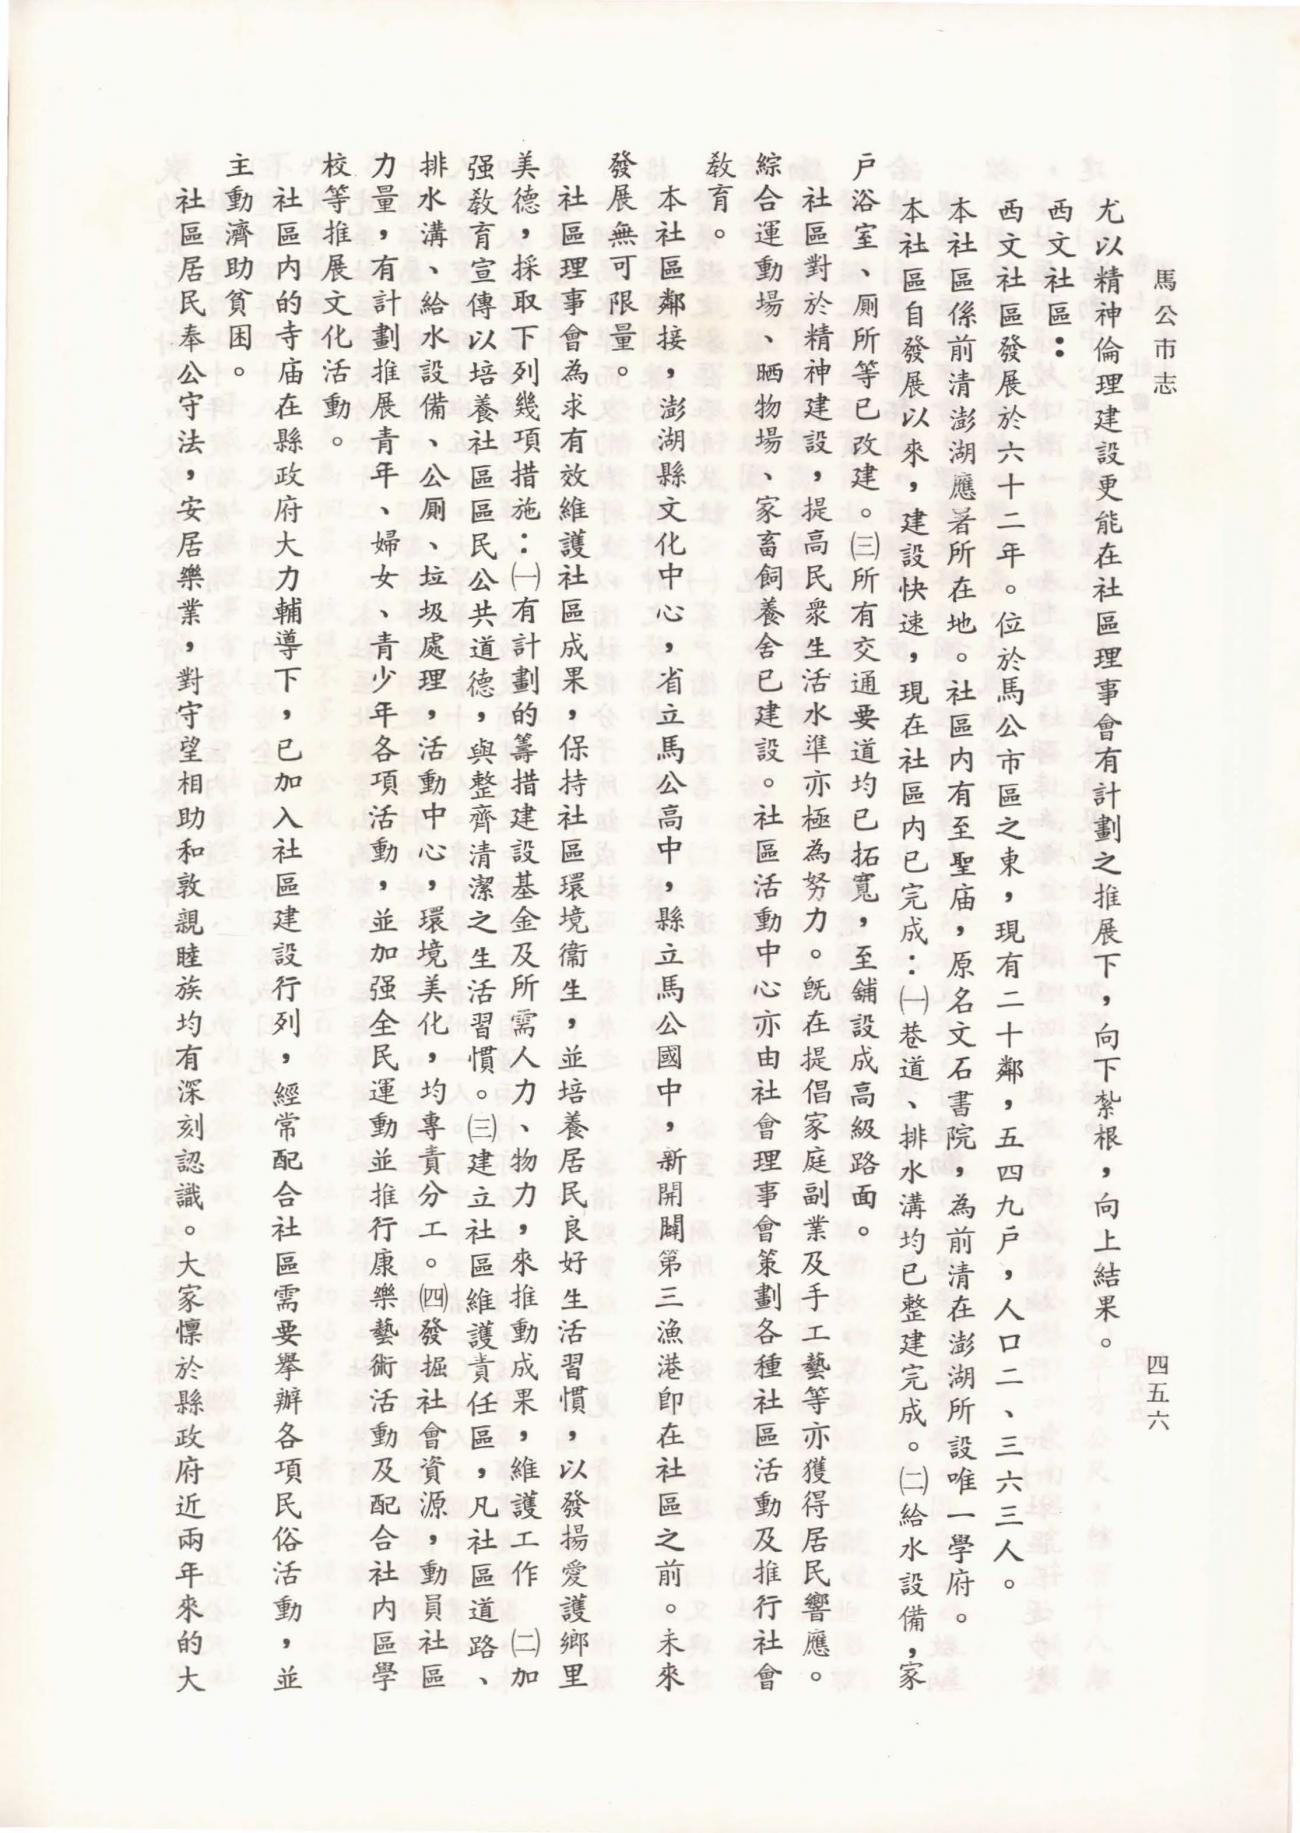 馬公市志
四五六
尤以精神倫理建設更能在社區理事會有計劃之推展下，向下紮根，向上結果。
西文社區：
西文社區發展於六十二年。位於馬公市區之東，現有二十鄰，五四九戶，人口二、三六三人。
本社區係前清澎湖應署所在地。社區內有至聖庙，原名文石書院，為前清在澎湖所設唯一學府。
本社區自發展以來，建設快速，現在社區內已完成：㈠巷道、排水溝均已整建完成。㈡給水設備，家
戶浴室、厠所等已改建。㈢所有交通要道均已拓寬，至舖設成高級路面。
社區對於精神建設，提高民衆生活水準亦極為努力。既在提倡家庭副業及手工藝等亦獲得居民響應。
綜合運動場、晒物場、家畜飼養舍已建設。社區活動中心亦由社會理事會策劃各種社區活動及推行社會
敎育。
本社區鄰接，澎湖縣文化中心，省立馬公高中，縣立馬公國中，新開闢第三漁港即在社區之前。未來
發展無可限量。
社區理事會為求有效維護社區成果，保持社區環境衞生，並培養居民良好生活習慣，以發揚愛護鄉里
美德，採取下列幾項措施：㈠有計劃的籌措建設基金及所需人力、物力，來推動成果，維護工作　㈡加
强敎育宣傳以培養社區區民公共道德，與整齊清潔之生活習慣。㈢建立社區維護責任區，凡社區道路、
排水溝、給水設備、公厠、垃圾處理，活動中心，環境美化，均專責分工。㈣發掘社會資源，動員社區
力量，有計劃推展青年、婦女、青少年各項活動，並加强全民運動並推行康樂藝術活動及配合社內區學
校等推展文化活動。
社區內的寺庙在縣政府大力輔導下，已加入社區建設行列，經常配合社區需要舉辦各項民俗活動，並
主動濟助貧困。
社區居民奉公守法，安居樂業，對守望相助和敦親睦族均有深刻認識。大家懍於縣政府近兩年來的大